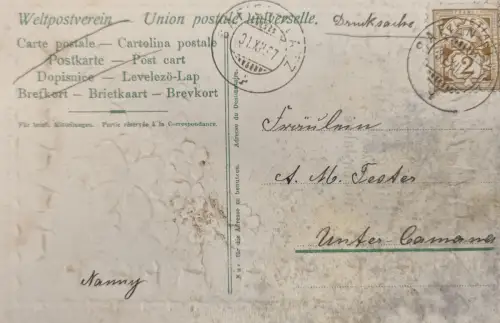 Weltpostverein — Union postale universelle.
Drucksache
Carte postale — Cartolina postale
Postkarte — Post cart
Dopisnice — Levelező-Lap
Brefkort — Brietkaart — Brevkort
Für briefl. Mitteilungen. Partie réservée à la Correspondance.
Nur für die Adresse zu benützen. Adresse du Destinataire.
SAFIEN PLATZ
31.XII.07
2
Fräulein
A. M. Tester
Unter-Camana
Nanny